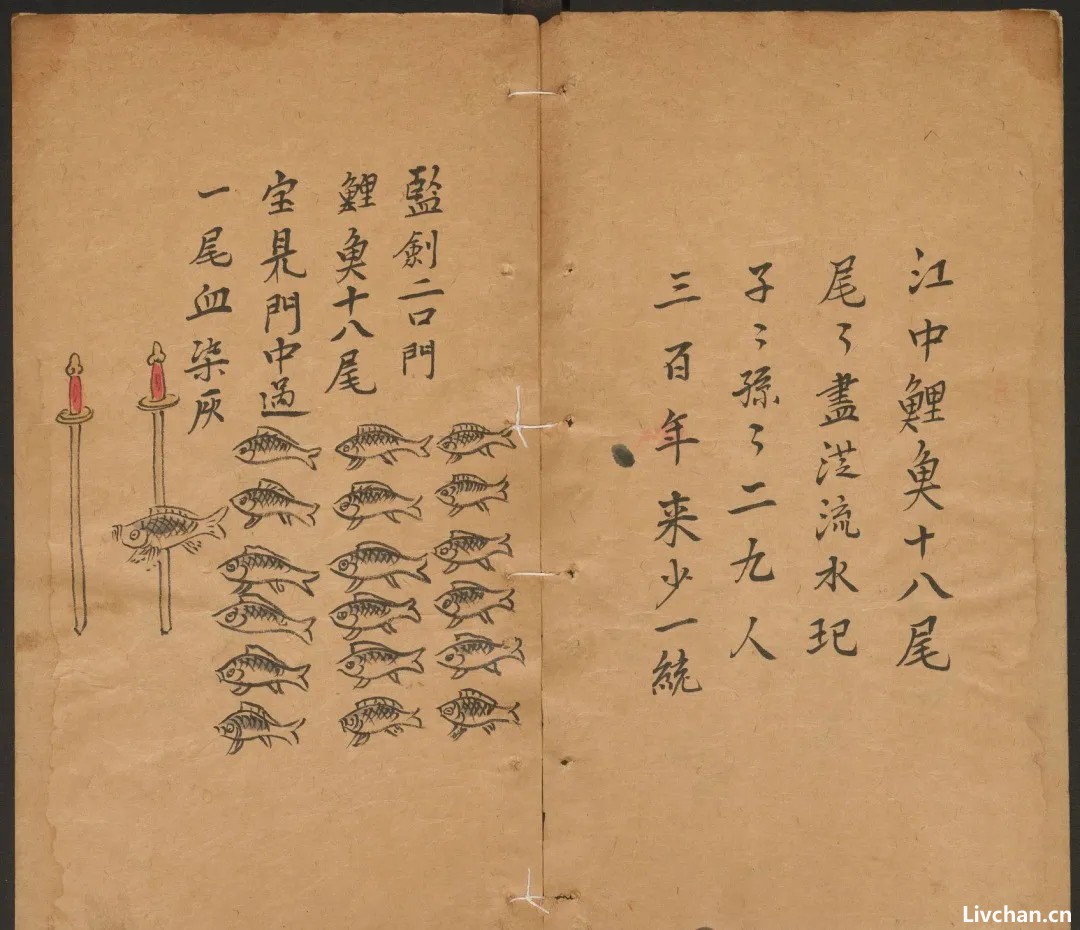 江中鯉魚十八尾
尾々盡洪流水玘
子々孫々二九人
三百年来少一統
監劍二口門
鯉魚十八尾
宝見門中過
一尾血染灰
Livchan.cn